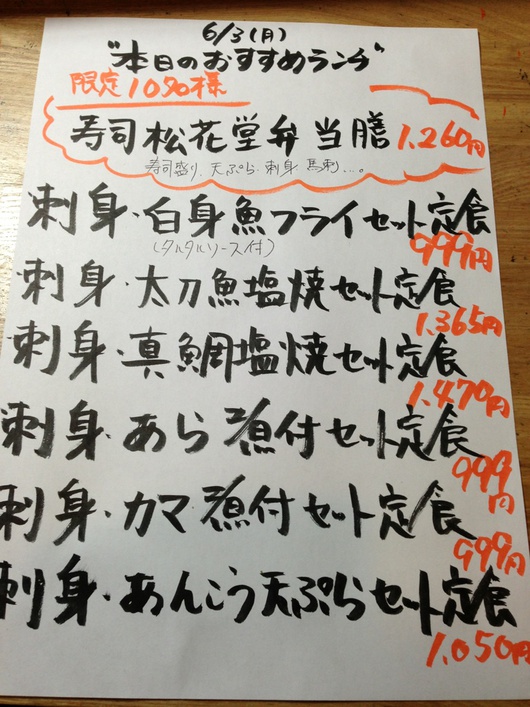 6/3(月)
"本日のおすすめランチ"
限定10名様
寿司松花堂弁当膳 1,260円
寿司盛り、天ぷら・刺身 馬刺…。
刺身・白身魚フライセット定食
(タルタルソース付)
999円
刺身・太刀魚塩焼セット定食
1,365円
刺身・真鯛塩焼セット定食
1,470円
刺身・あら煮付セット定食
999円
刺身・カマ煮付セット定食
999円
刺身・あんこう天ぷらセット定食
1,050円